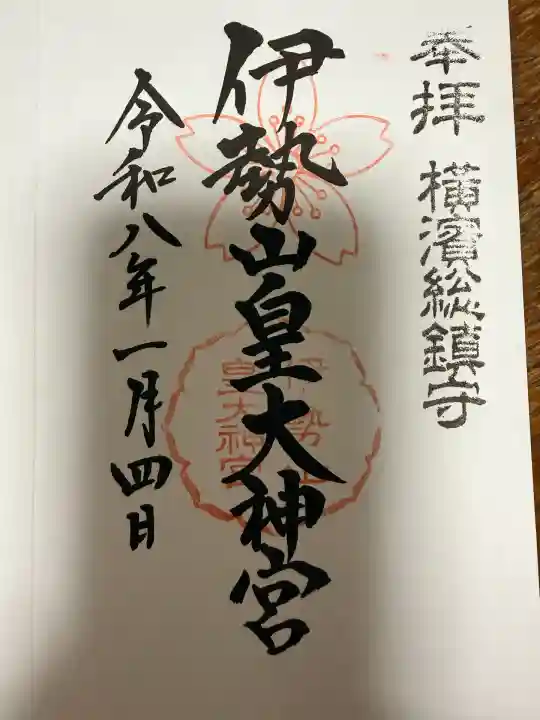 奉拝 横濱総鎮守
伊勢山皇大神宮
伊勢山
皇大神宮
令和八年一月四日